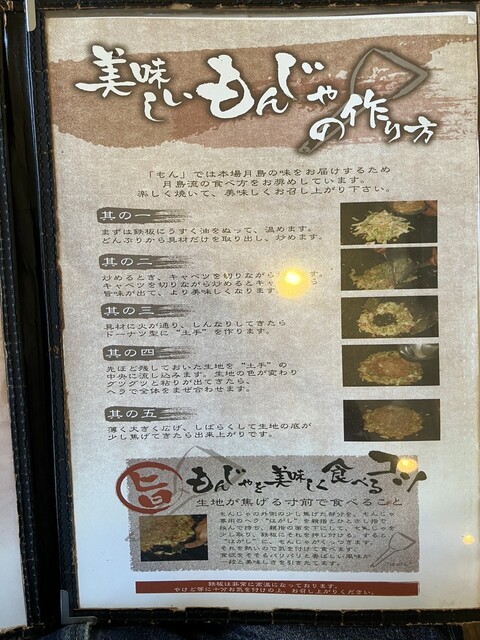 美味しいもんじゃの作り方
「もん」では本場月島の味をお届けするため
月島流の食べ方をお奨めしています。
楽しく焼いて、美味しくお召し上がり下さい。
其の一
まずは鉄板にうすく油をぬって、温めます。
どんぶりから具材だけを取り出し、炒めます。
其の二
炒めるとき、キャベツを切りながら
キャベツを切りながら炒めるとキャ
旨味が出て、より美味しくなります
其の三
具材に火が通り、しんなりしてきたら
ドーナツ型に“土手”を作ります。
其の四
先ほど残しておいた生地を“土手”の
中央に流し込みます。生地の色が変わり
グツグツと粘りが出てきたら、
ヘラで全体をまぜ合わせます。
其の五
薄く大きく広げ、しばらくして生地の底が
少し焦げてきたら出来上がりです。
旨
もんじゃを美味しく食べるコツ
生地が焦げる寸前で食べること
もんじゃの外側の少し焦げた部分を、もんじゃ
専用のヘラ“はがし”を親指とひとさし指で
挟んで持ち、親指の面を下にして、もんじゃを
少し取り、鉄板にそれを押し付ける。すると
“はがし”に、もんじゃがくっつきます。
それを熱いので気を付けて食べます。
食感をそそるパリパリと香ばしい風味が
一段と美味しさを引きたてます。
鉄板は非常に高温になっております。
やけど等に十分お気を付けの上、お召し上がりください。